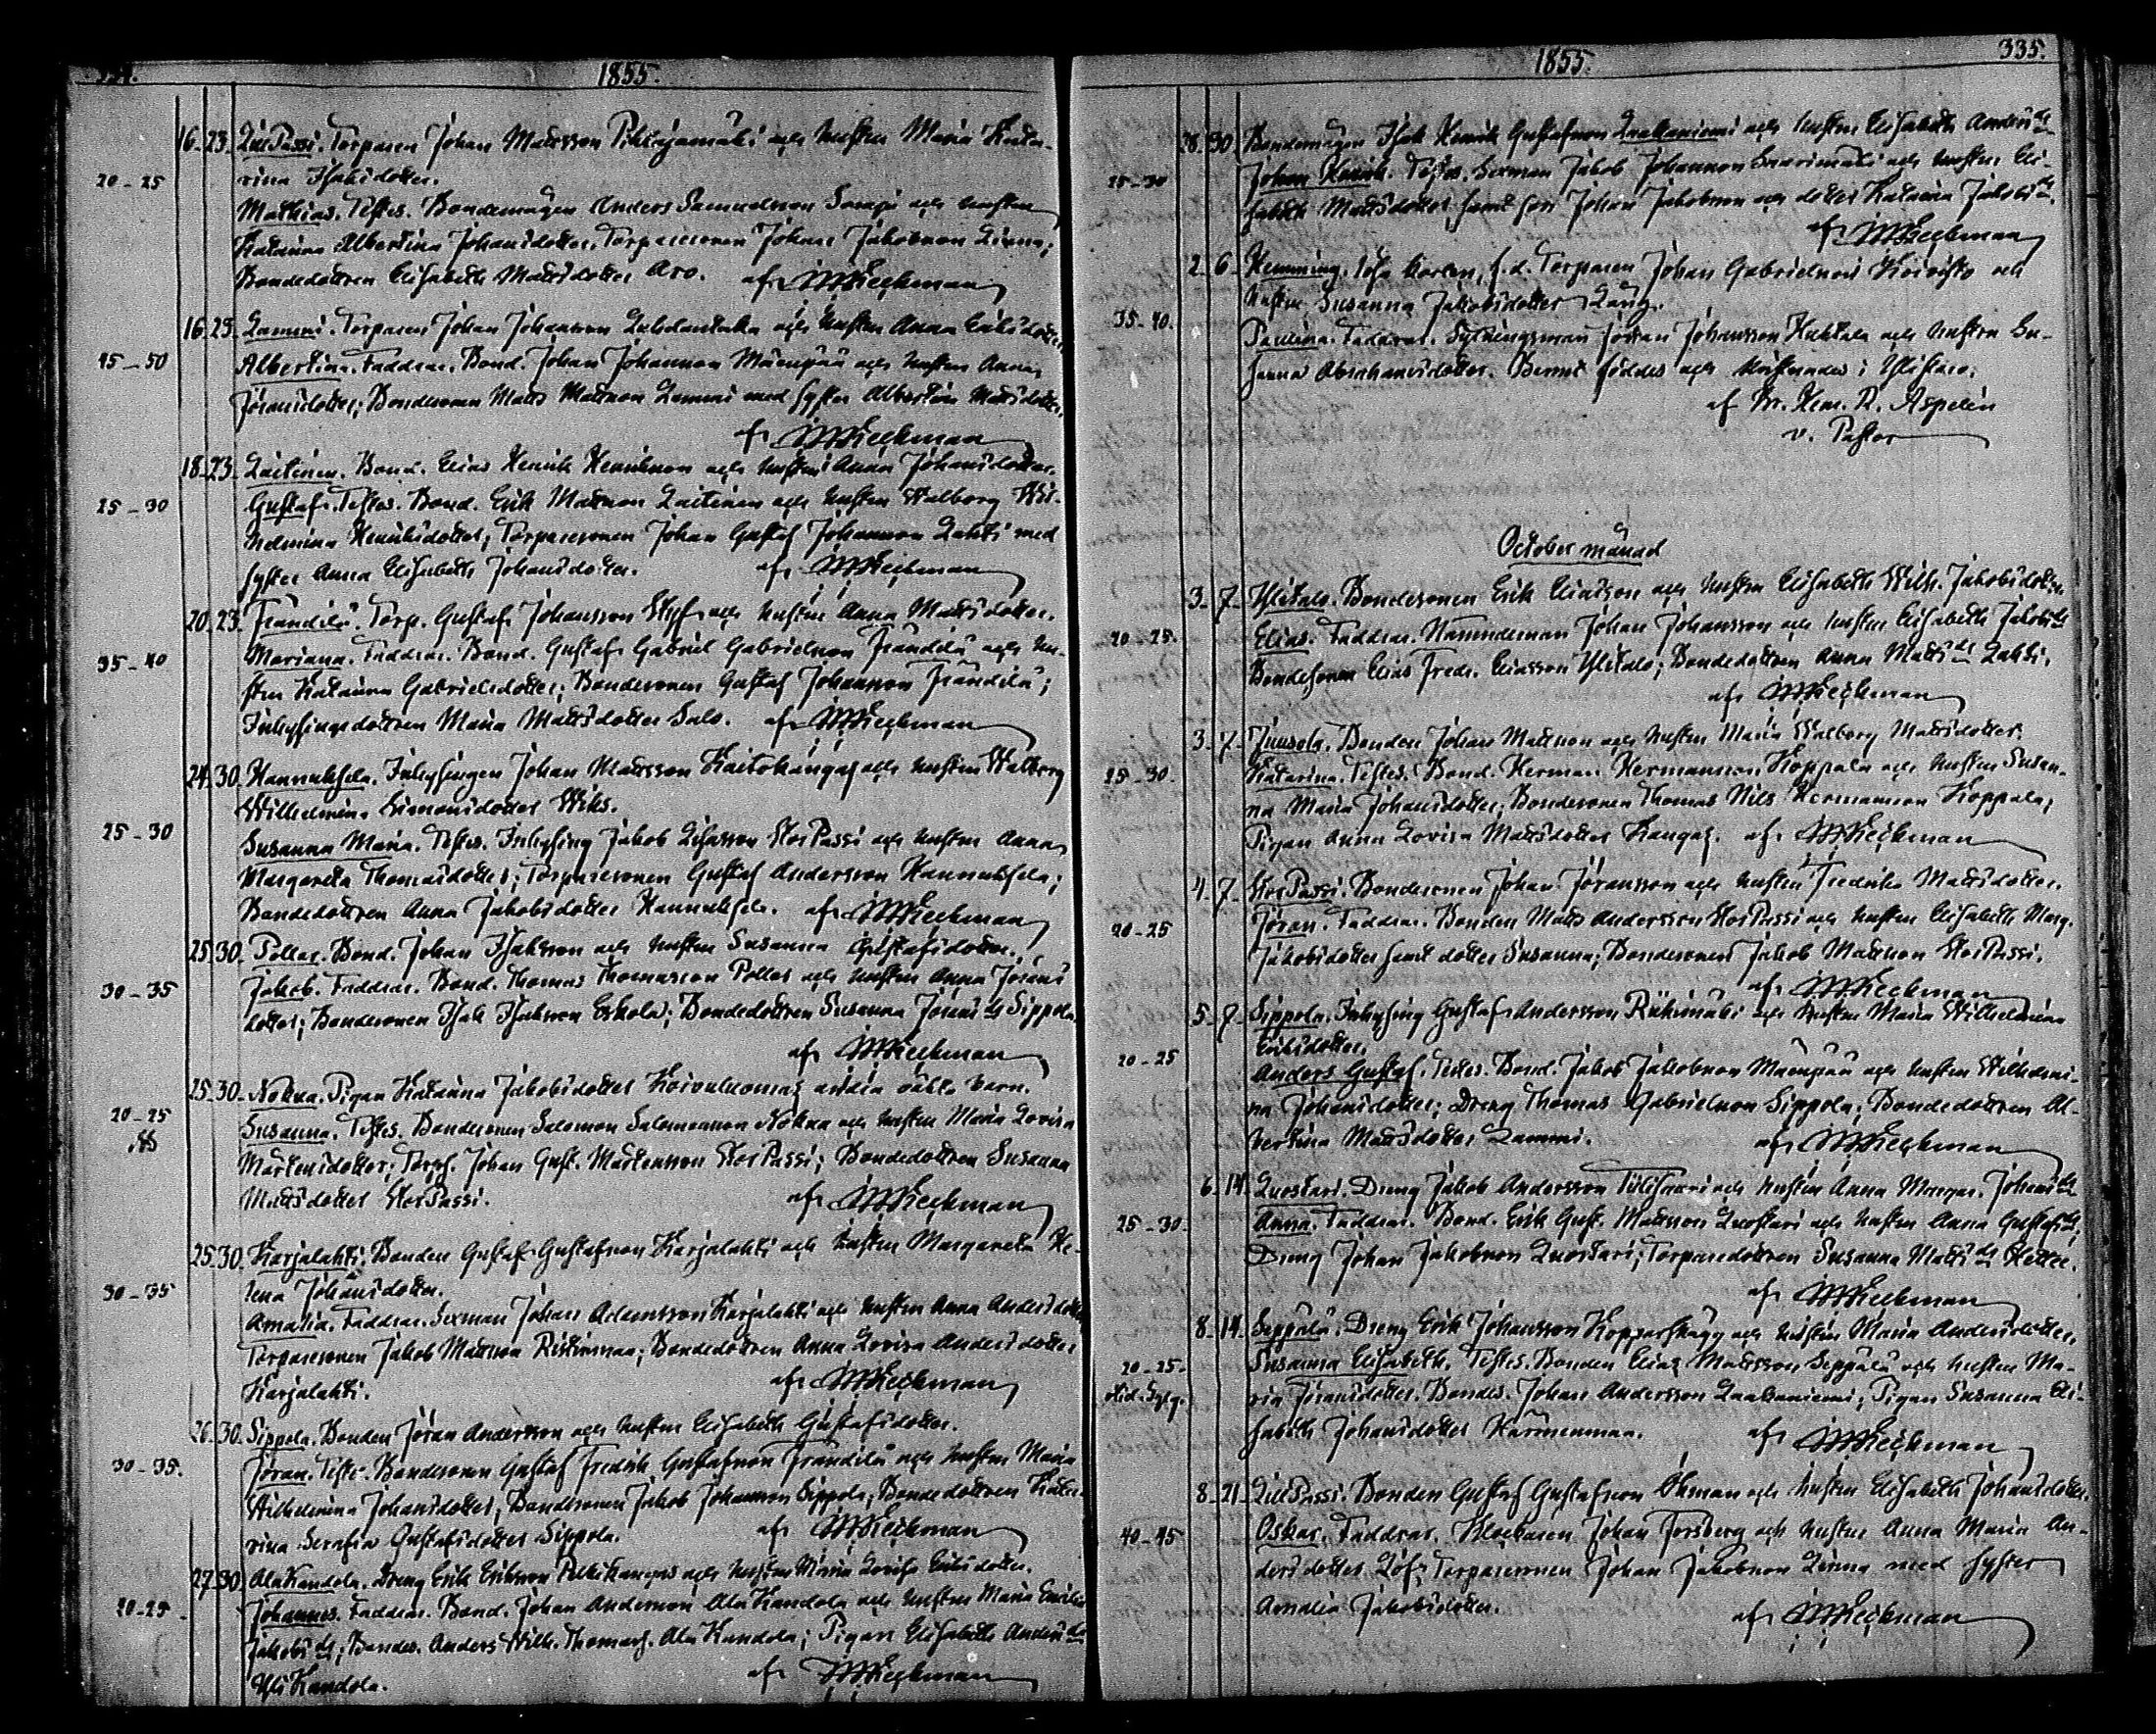 334.
1855.
16. 23. LillPassi. Torparen Johan Mattsson Pihlajamäki och hustrun Maria Kata-
20-25 rina Isaksdotter.
Mathias. Testes. Bondemågen Anders Samuelsson och hustrun
Katarina Albertina Johansdotter, Torparesonen Johan Jakobsson Linna;
Bondedottren Elisabeth Mattsdotter Aro. af
16. 23. Lammi. Torparen Johan Johansson och hustrun Anna Eriksdotter.
45-50 Albertina. Faddrar. Bond. Johan Johansson Mäenpää och hustrun Anna
Jöransdotter; Bondesonen Matts Mattsson Lammi med syster Albertina Mattsdotter,
af
18. 23. Laitinen. Bond. Elias Henrik Henriksson och hustrun Anna Johansdotter.
25-30 Gustaf. Testes. Bond. Erik Mattsson Laitinen och hustrun Walborg Wil-
helmina Henriksdotter, Torparesonen Johan Gustaf Johansson Lahti med
syster Anna Elisabeth Johansdotter. af
20. 23. Frändilä. Torp. Gustaf Johansson och hustrun Anna Mattsdotter.
35-40 Mariana. Faddrar. Bond. Gustaf Gabriel Gabrielsson Frändilä och hu-
strun Katarina Gabrielsdotter; Bondesonen Gustaf Johansson Frändilä;
Inhysingedottren Maria Mattsdotter Salo. af
24. 30. Hannuksela. Inhysingen Johan Mattsson Kaitokangas och hustrun Walborg
Wilhelmina Simonsdotter Wiks.
25-30 Susanna Maria. Testes. Inhysing Jakob StorPassi och hustrun Anna
Margareta Thomasdotter; Torparesonen Gustaf Andersson Hannuksela;
Bondedottren Anna Jakobsdotter Hannuksela. af
25. 30. Pollar. Bond. Johan Isaksson och hustrun Susanna Gustafsdotter.
30-35 Jakob. Faddrar. Bond. Thomas Thomasson Pollar och hustrun Anna Jörans
dotter; Bondesonen Isak Isaksson Eskola; Bondedottren Susanna Jörans dr Sippola.
af
25. 30. Nokua. Pigan Katarina Jakobsdotter Koivuluomas andra oäkta barn.
20-25 Susanna. Testes. Bondesonen Salomon Salomonsson Nokua och hustrun Maria Lovisa
Mårtensdotter; Johan Gust. Mårtensson StorPassi; Bondedottren Susanna
Mattsdotter StorPassi. af
25. 30. Karjalahti. Bonden Gustaf Gustafsson Karjalahti och hustrun Margareta He-
30-35 lena Johansdotter.
Amalia. Faddrar. Sexman Johan Adamsson Karjalahti och hustrun Anna Andersdotter
Torparesonen Jakob Mattsson Ristinmaa; Bondedottren Anna Lovisa Andersdotter
Karjalahti. af
26. 30. Sippola. Bonden Jöran Andersson och hustrun Elisabeth Gustafsdotter.
30-35. Jöran. Testes. Bondesonen Gustaf Fredrik Gustafsson Frändilä och hustrun Maria
Wilhelmina Johansdotter, Bondesonen Jakob Johansson Sippola, Bondedottren Kata-
rina Serafia Gustafsdotter Sippola. af
27. 30. AlaKandola. Dreng Erik Eriksson och hustrun Maria Lovisa Eriksdotter.
20-25 Johannes. Faddrar. Bond. Johan Andersson AlaKandola och hustrun Maria Emilia
Jakobs dr; Bondes. Anders Wilh. Thomass. AlaKandola; Pigan Elisabeth Anders dr
YliKandola. af
1855.
335.
28. 30. Bondemågen Isak Henrik Gustafsson Laakaniemi och hustrun Elisabeth Anders dr
25-30 Johan Henrik. Testes. Sexman Jakob Johansson Saarimäki och hustrun Eli-
sabeth Mattsdotter samt son Johan Jakobsson och dotter Katarina Jakobs dr.
af
2. 6. Hemming. f. d. Torparen Johan Gabrielsson Koivisto och
hustrun Susanna Jakobsdotter Lång.
35-40. Paulina. Faddrar. Johan Johansson Huhtala och hustrun Su-
sanna Abrahamsdotter. Barnet föddes och kristnades i Ylistaro.
af Br. Hem. R. Aspelin
v. Pastor
October månad
3. 7. Ylitalo. Bondesonen Erik Eliasson och hustrun Elisabeth Wilh. Jakobsdotter
20-25. Elias. Faddrar. Nämndeman Johan Johansson och hustrun Elisabeth Jakobs dr
Bondesonen Elias Fredr. Eliasson Ylitalo; Bondedottren Anna Matts dr Lahti.
af
3. 7. Juusola. Bonden Johan Mattsson och hustrun Maria Walborg Mattsdotter.
25-30. Katarina. Testes. Bond. Herman Hermansson Koppala och hustrun Susan-
na Maria Johansdotter; Bondesonen Thomas Nils Hermansson Koppala,
Pigan Anna Lovisa Mattsdotter Kangas. af
4. 7. StorPassi. Bondesonen Johan Jöransson och hustrun Fredrika Mattsdotter.
20-25 Jöran. Faddrar. Bonden Matts Andersson StorPassi och hustrun Elisabeth Marg.
Jakobsdotter samt dotter Susanna; Bondesonen Jakob Mattsson StorPassi.
af
5. 7. Sippola. Inhysing Gustaf Andersson Riihimäki och hustrun Maria Wilhelmina
20-25 Eriksdotter.
Anders Gustaf. Testes. Bond. Jakob Jakobsson Mäenpää och hustrun Wilhelmi-
na Johansdotter; Dreng Thomas Gabrielsson Sippola; Bondedottren Al-
bertina Mattsdotter Lammi. af
6. 14. Luostari. Dreng Jakob Andersson och hustrun Anna Margar. Johans dr
25-30. Anna. Faddrar. Bond. Erik Gust. Mattsson Luostari och hustrun Anna Gustafs dr;
Dreng Johan Jakobsson Luostari; Torparedottren Susanna Matts dr
af
8. 14. Seppälä. Dreng Erik Johansson Kopparskägg och hustrun Maria Andersdotter,
20-25. Susanna Elisabeth. Testes. Bonden Elias Mattsson Seppälä och hustrun Ma-
ria Jöransdotter. Bondes. Johan Andersson Laakaniemi; Pigan Susanna Eli-
sabeth Johansdotter. af
8. 21. LillPassi. Bonden Gustaf Gustafsson Öhman och hustrun Elisabeth Johansdotter.
40-45 Oskar. Faddrar. Klockaren Johan Forsberg och hustrun Anna Maria An-
dersdotter Löf; Torparesonen Johan Jakobsson Linna med syster
Amalia Jakobsdotter. af